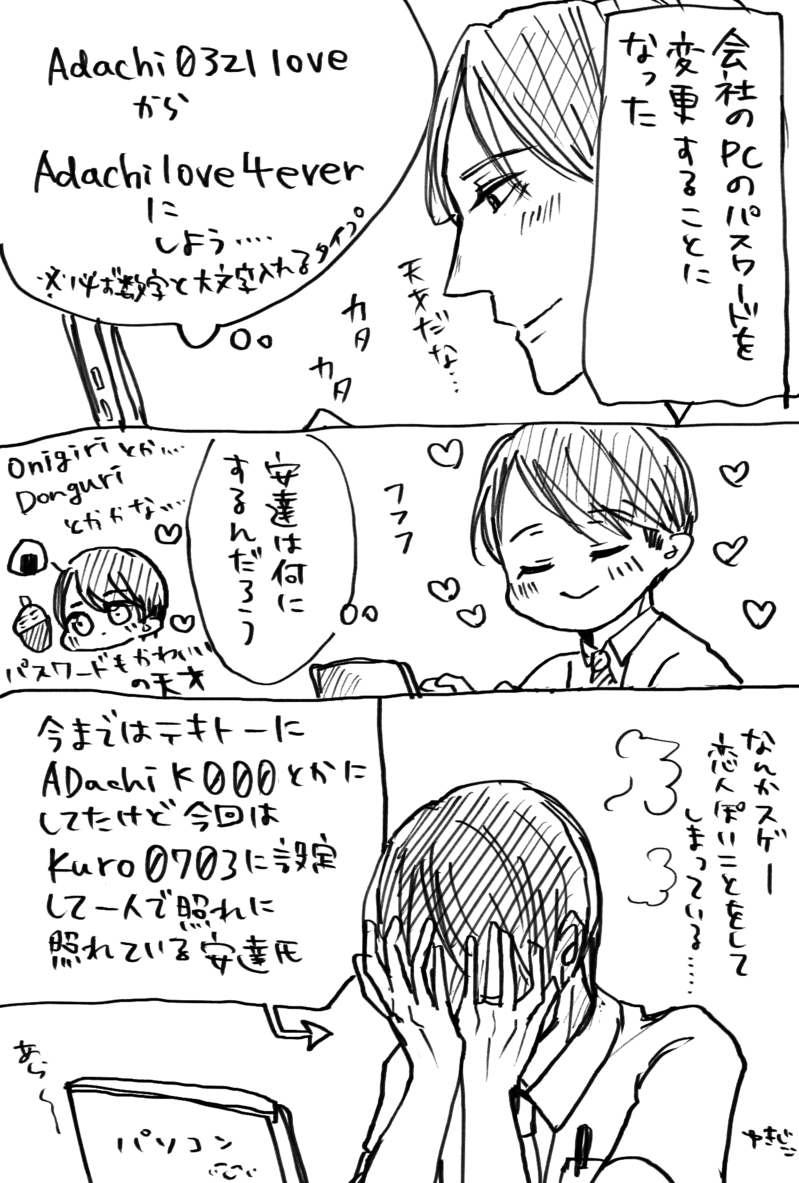 会社のPCのパスワードを
変更することに
なった
Adachi0321love
から
Adachilove4ever
に
しよう‥‥
※必ず数字と大文字入れるタイプ
天才だな…
カタ
カタ
フフフ
安達は何に
するんだろう
Onigiriとか…
Donguri
とかかな…
パスワードもかわいい
の天才
なんかスゲー
恋人ぽいことをして
しまっている……
今まではテキトーに
ADachiK000とかに
してたけど今回は
Kuro0703に設定
して一人で照れに
照れている安達氏
あら〜
パソコン